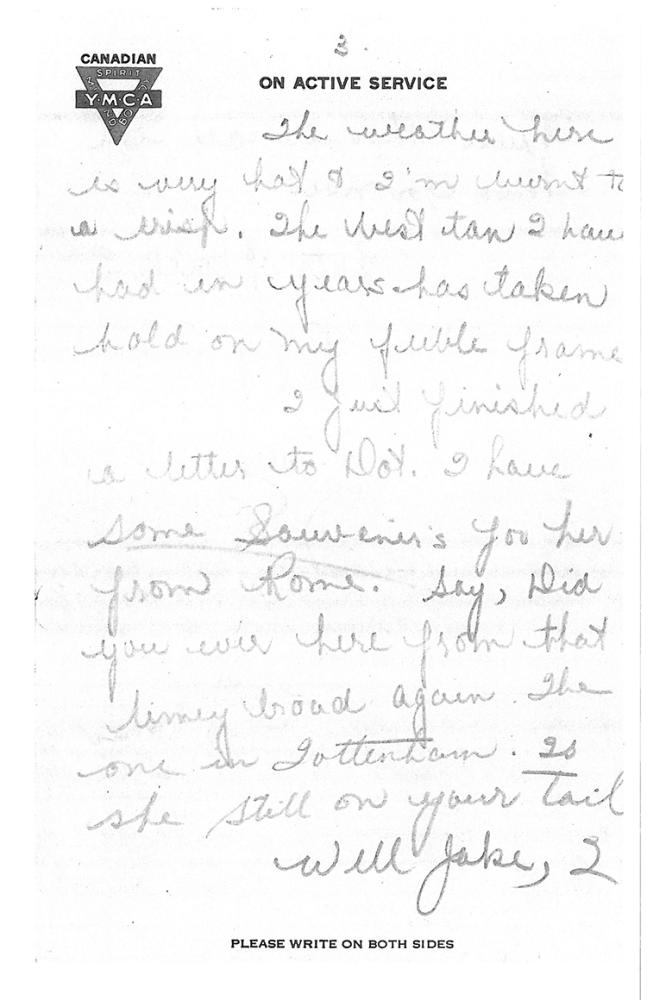 3.
CANADIAN
SPIRIT
Y·M·C·A
MIND
BODY
ON ACTIVE SERVICE
The weather here
is very hot & I'm burnt to
a crisp. The best tan I have
had in years has taken
hold on my feeble frame
I just finished
a letter to Dot. I have
some Souvenir's foo her
from Rome. Say, Did
you ever here from that
limey broad again. The
one in Tottenham. Is
she still on your tail
Well Jake, I
PLEASE WRITE ON BOTH SIDES